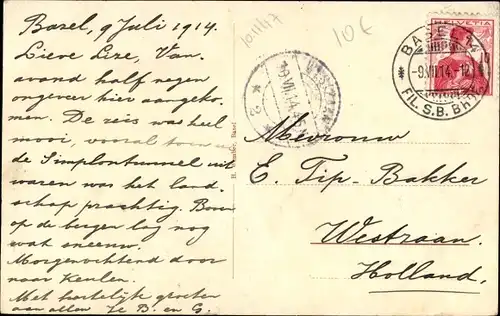 Basel, 9 Juli 1914.
Lieve Lize, Van-
avond half negen
ongeveer hier aangeko-
men. De reis was heel
mooi, vooral toen we
de Simplontunnel uit
waren was het land-
schap prachtig. Boven
op de bergen lag nog
wat sneeuw.
Morgenochtend door
naar Keulen.
Met hartelijke groeten
aan allen B. en G.
10 €
K 2
HELVETIA
10
BASEL 14
-9.VII.14.-12
FIL. S.B. BHF.
Mevrouw
E. Tip-Bakker
Westzaan.
Holland.